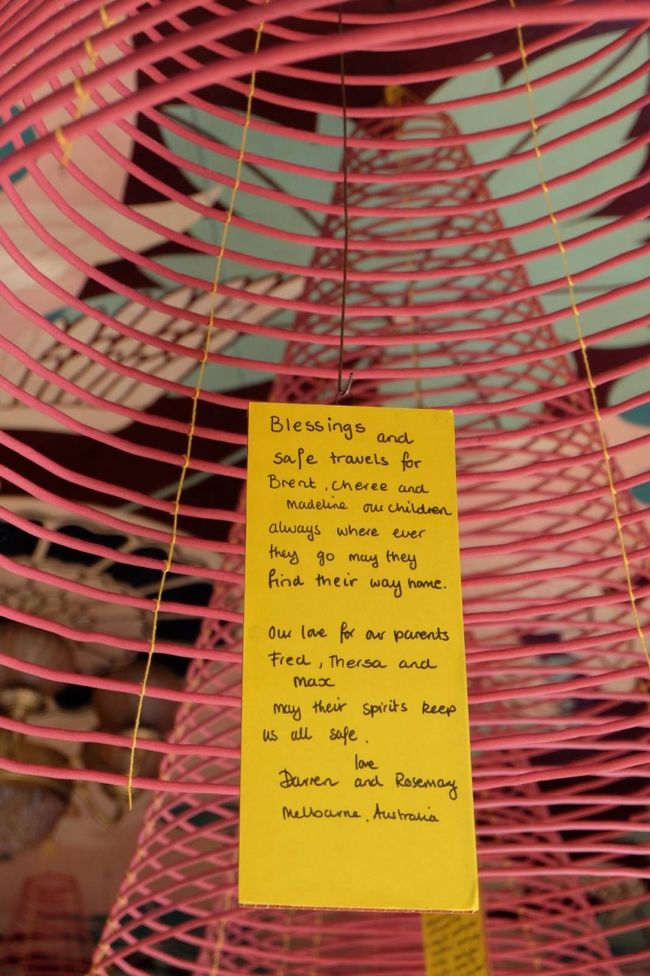 Blessings and
safe travels for
Brent, Cheree and
madeline our children
always where ever
they go may they
find their way home.
Our love for our parents
Fred, Thersa and
max
may their spirits keep
us all safe.
love
Darren and Rosemary
Melbourne, Australia